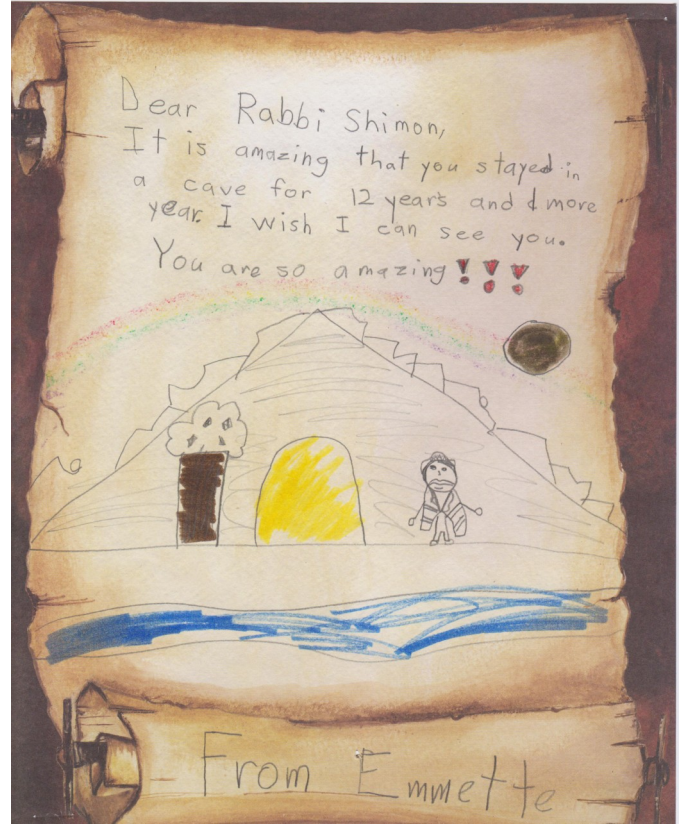 Dear Rabbi Shimon,
It is amazing that you stayed in
a cave for 12 years and 1 more
year. I wish I can see you.
You are so amazing!!!
From Emmette